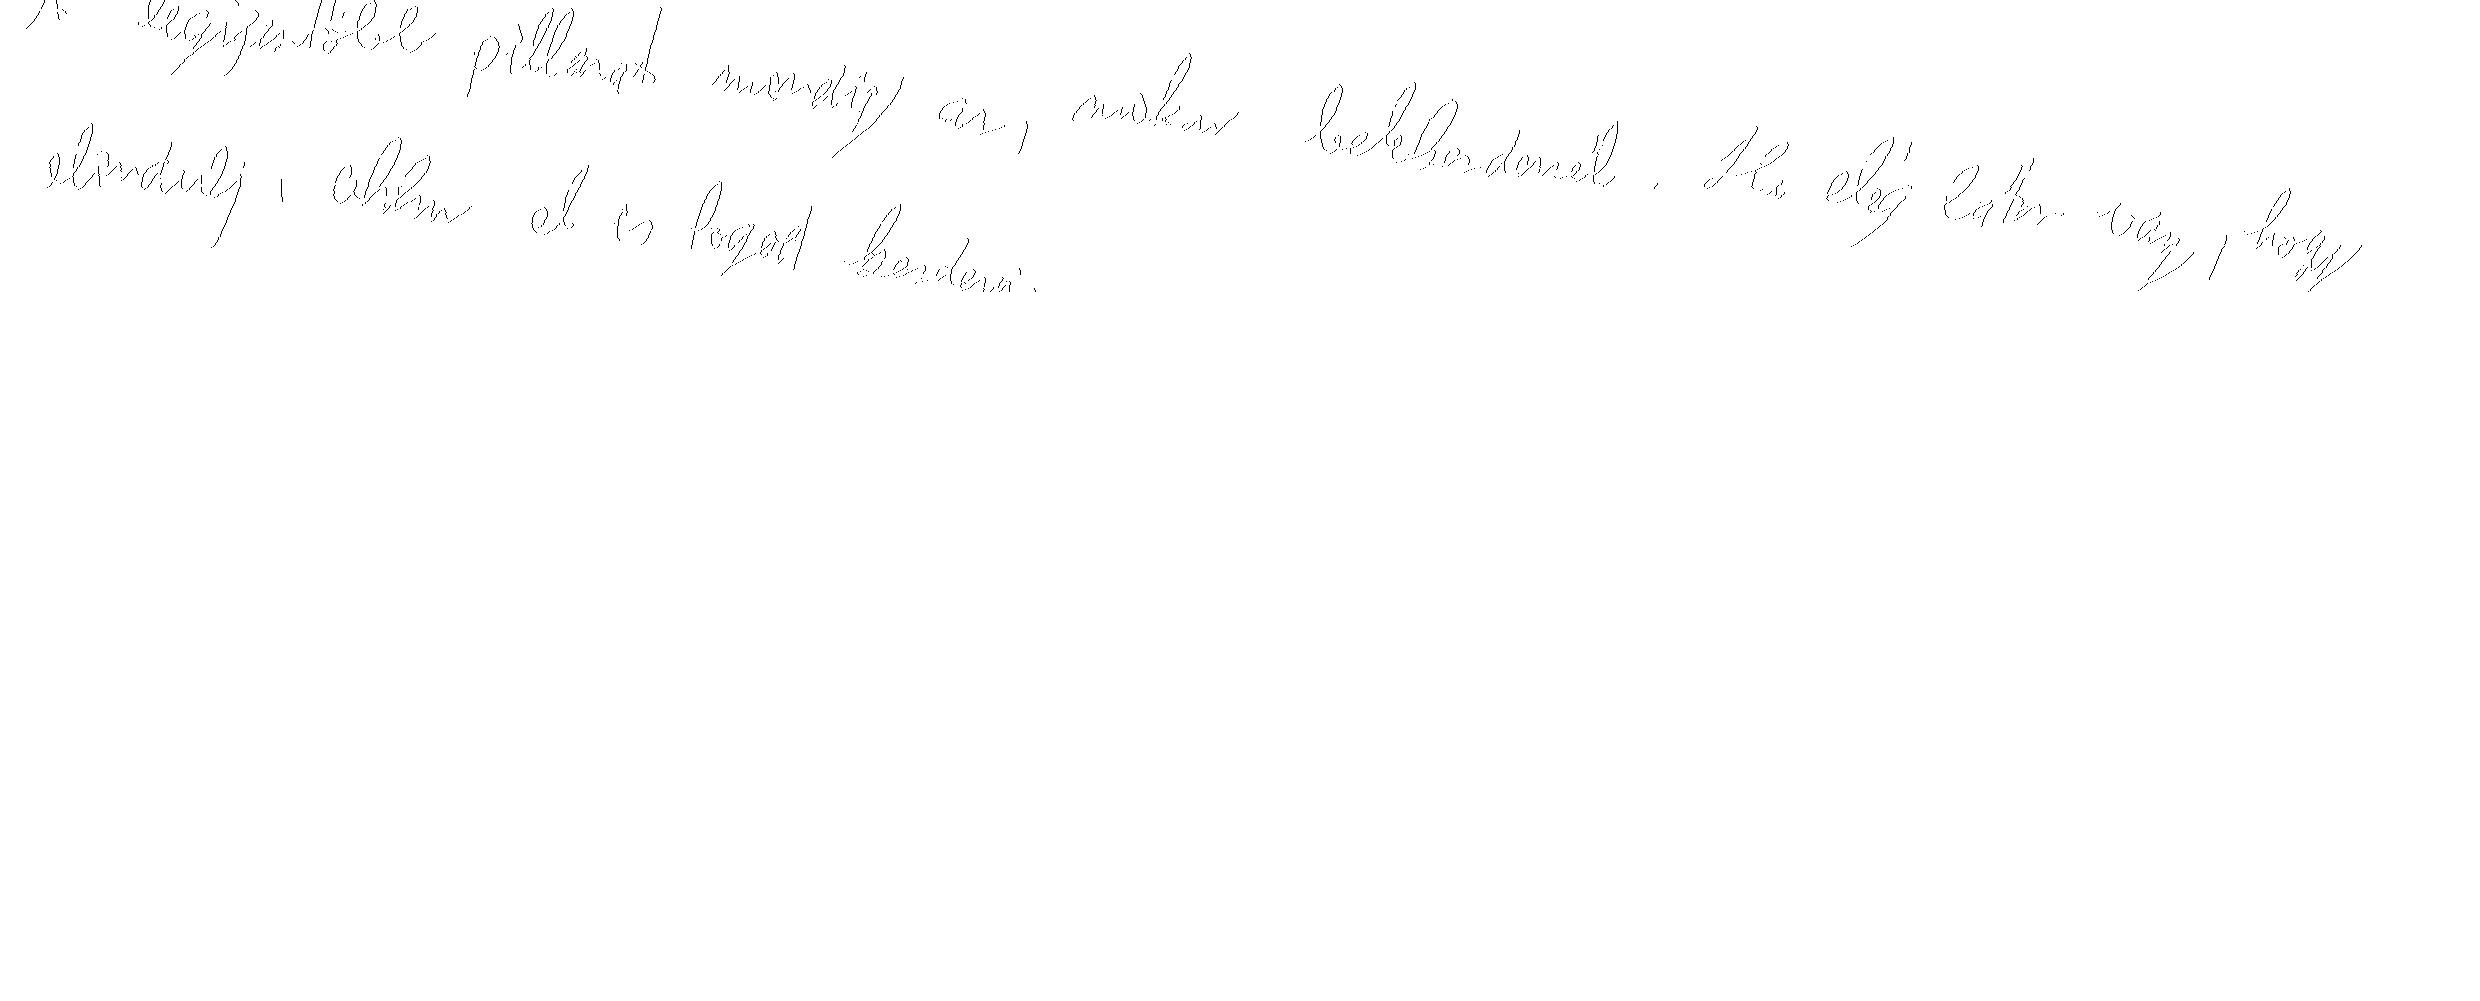 A legijesztőbb pillanat mindig az, mikor belekezdenél. Ha elég bátor vagy, hogy
elindulj, akkor el is fogod kezdeni.